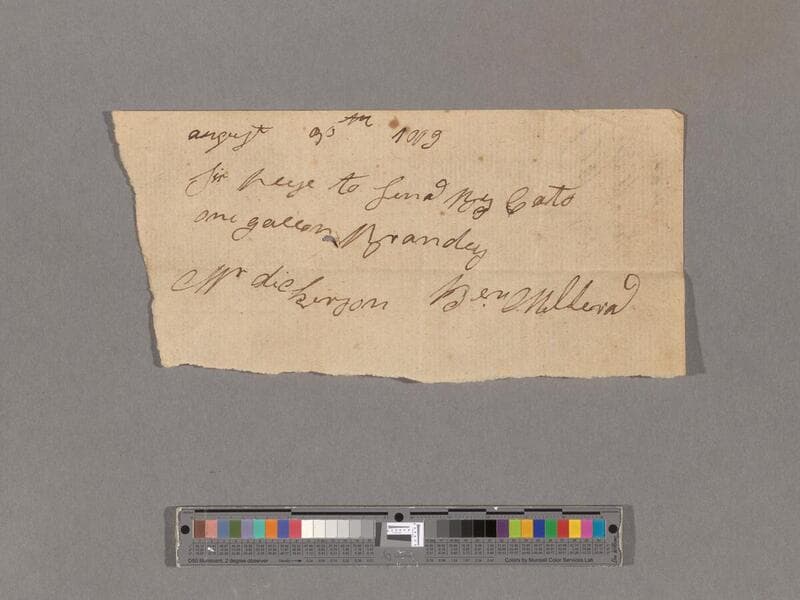 august 30th
Sir pleye to send By Cato
one gallon Brandey
Mr dickerson Ben Millerd
D50 Illuminant, 2 degree observer
Colors by Munsell Color Services Lab